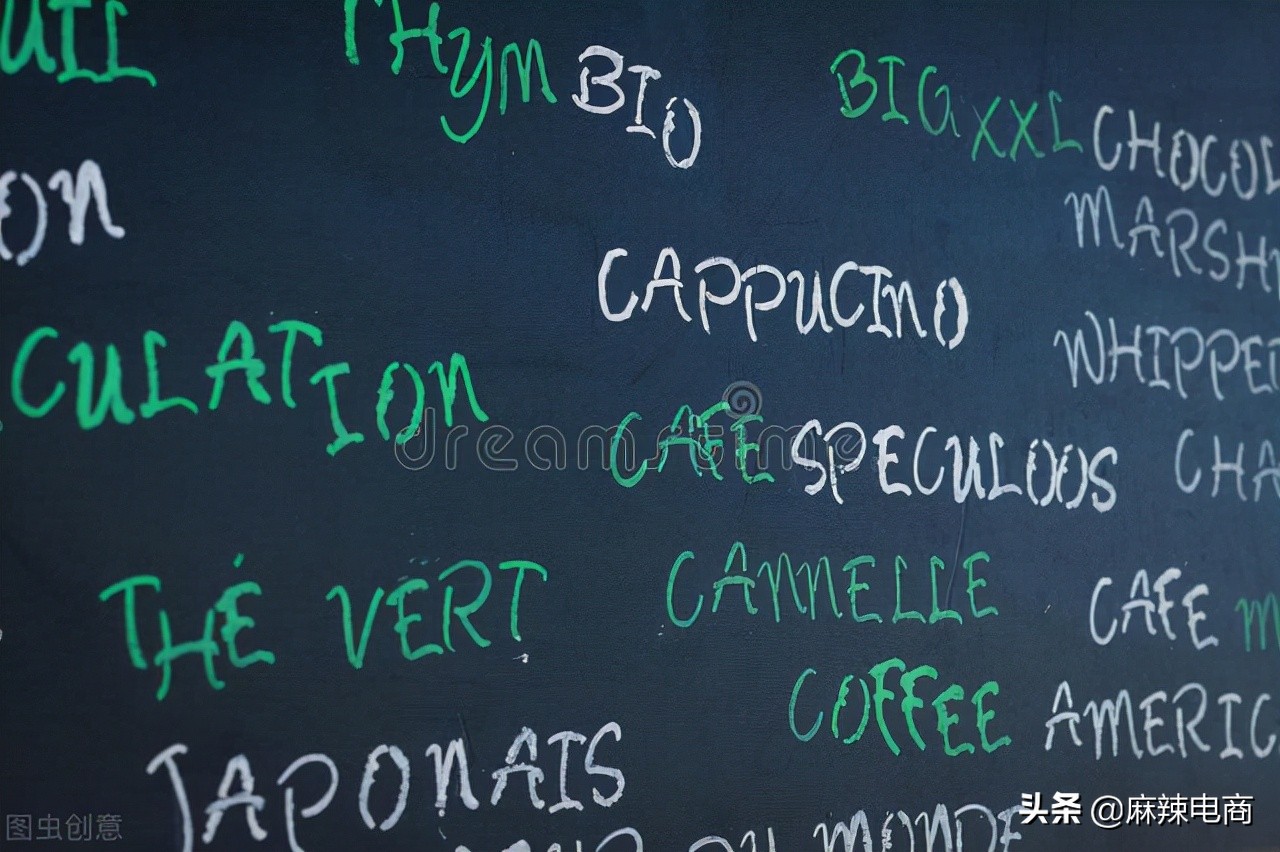 UIL
THYM BIO
BIG XXL CHOCOL
ON
MARSH
CAPPUCINO
WHIPPE
CULATION
CAFE SPECULOOS
CHA
dreamstime
THÉ VERT
CANNELLE
CAFE M
COFFEE AMERIC
JAPONAIS
MONDE
图虫创意
头条 @麻辣电商